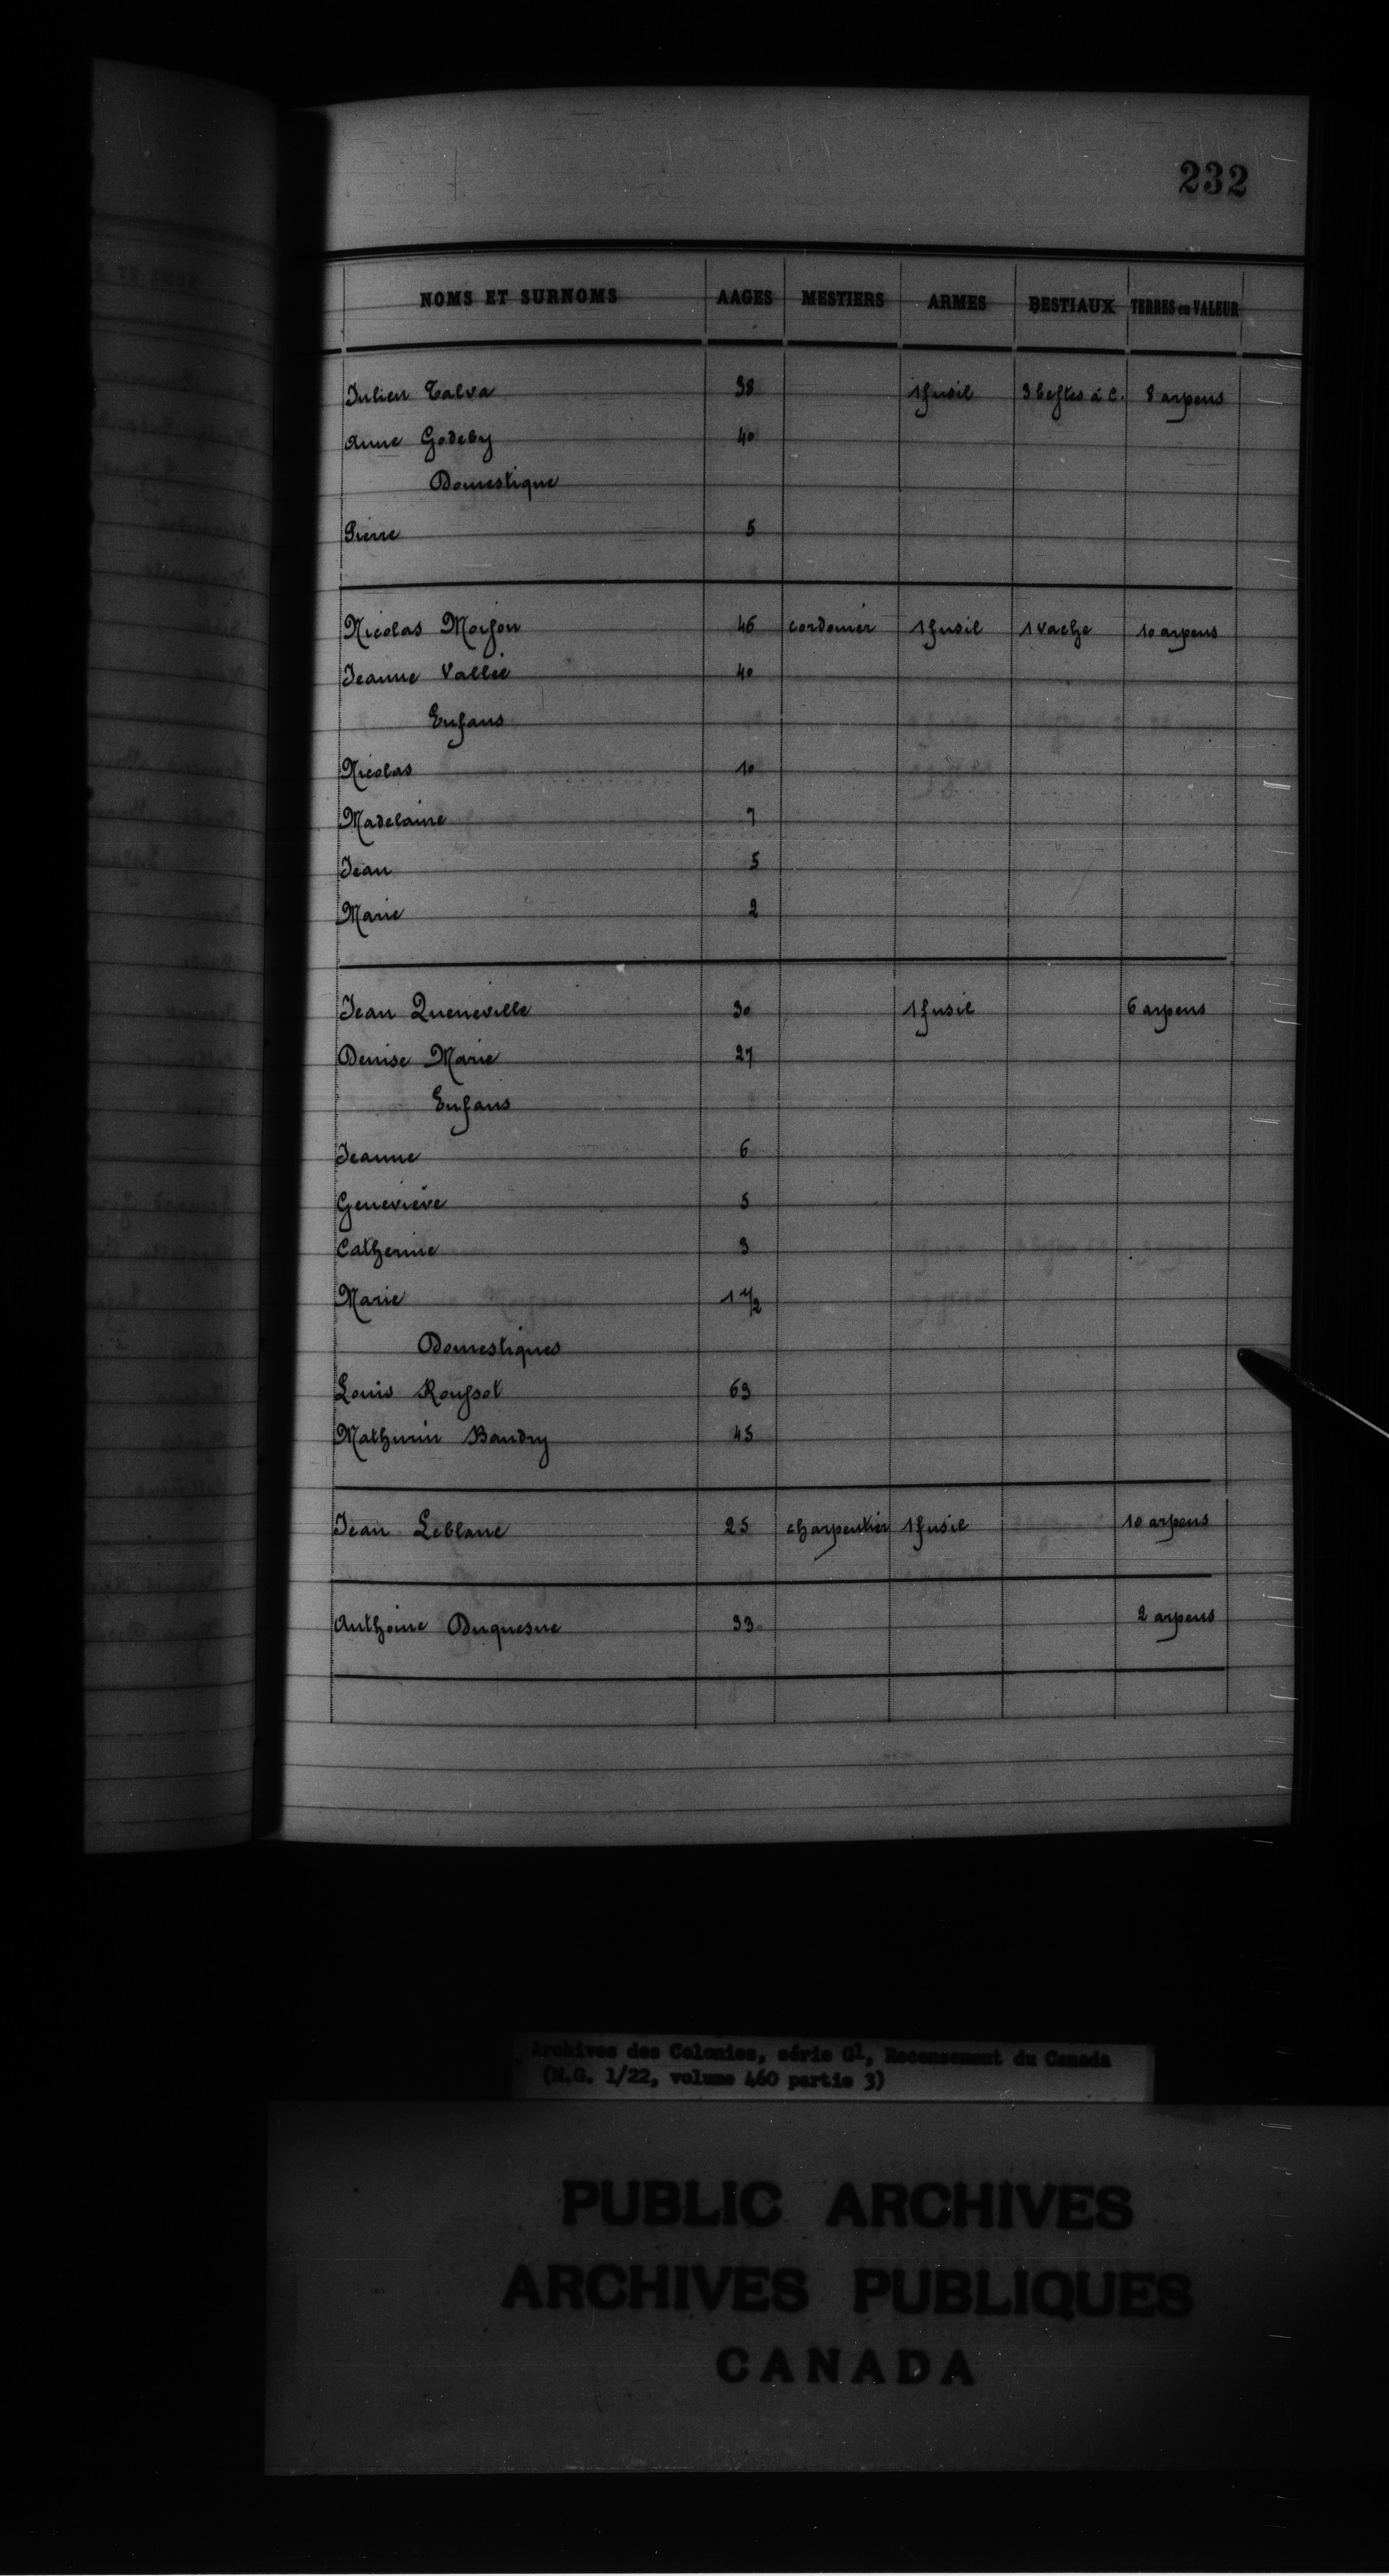 232
NOMS ET SURNOMS AAGES MESTIERS ARMES BESTIAUX TERRES en VALEUR
Julien Talva 38 1 fusil 3 bestes à c. 8 arpens
Anne Godeby 40
Domestique
Pierre 5
Nicolas Moison 46 cordonier 1 fusil 1 vache 10 arpens
Jeanne Vallée 40
Enfans
Nicolas 10
Madelaine 7
Jean 5
Marie 2
Jean Queneville 30 1 fusil 6 arpens
Denise Marie 27
Enfans
Jeanne 6
Geneviève 5
Catherine 3
Marie 1 1/2
Domestiques
Louis Roussot 63
Mathurin Baudry 45
Jean Leblanc 25 charpentier 1 fusil 10 arpens
Anthoine Duquesne 33 2 arpens
Archives des Colonies, série G1, Recensement du Canada
(M.G. 1/22, volume 460 partie 3)
PUBLIC ARCHIVES
ARCHIVES PUBLIQUES
CANADA